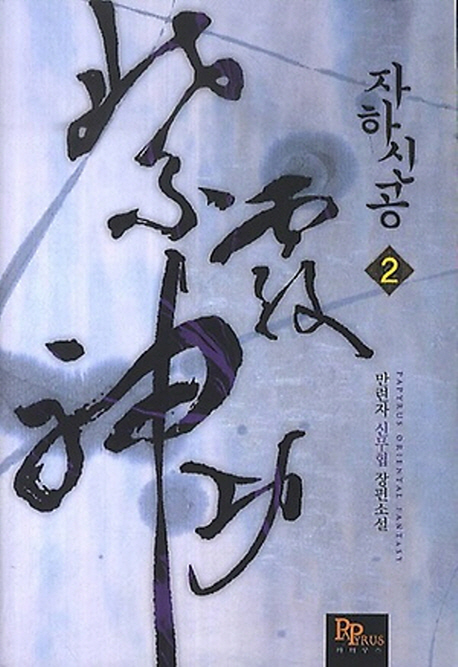 紫霞神功
자하신공
2
만련자 신무협 장편소설
PAPYRUS ORIENTAL FANTASY
PAPYRUS
파피루스